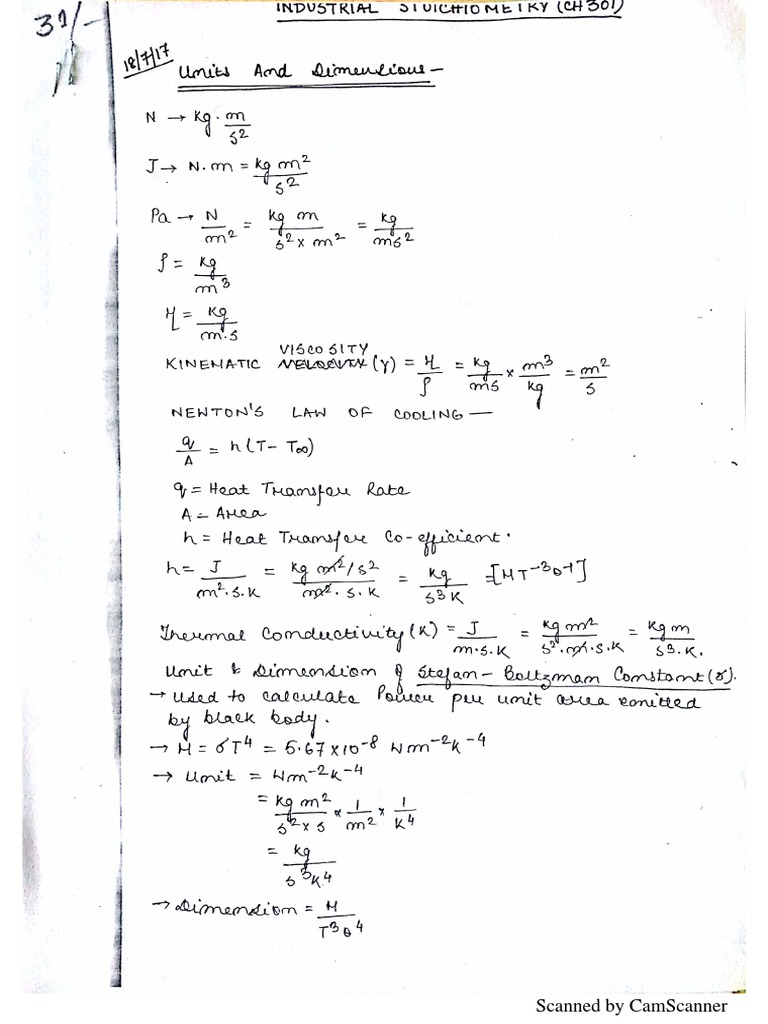 INDUSTRIAL STOICHIOMETRY (CH301)
31/-
18/7/17
Units And Dimensions -
N → kg · m/s²
J → N.m = kg m²/s²
Pa → N/m² = kg m/s² x m² = kg/ms²
ρ = kg/m³
η = kg/m.s
VISCOSITY
KINEMATIC VELOCITY (γ) = η/ρ = kg/ms x m³/kg = m²/s
NEWTON'S LAW OF COOLING —
q/A = h(T - T∞)
q = Heat Transfer Rate
A = Area
h = Heat Transfer Co-efficient.
h = J/m².s.K = kg m²/s²/m².s.K = kg/s³K = [MT⁻³θ⁻¹]
Thermal Conductivity (K) = J/m.s.K = kg m²/s².m.s.K = kg m/s³.K.
Unit & Dimension of Stefan - Boltzman Constant (σ).
→ Used to calculate Power per unit area emitted
by black body.
→ M = σT⁴ = 5.67 x 10⁻⁸ Wm⁻²K⁻⁴
→ Unit = Wm⁻²K⁻⁴
= kg m²/s² x s x 1/m² x 1/K⁴
= kg/s³K⁴
→ Dimension = M/T³θ⁴
Scanned by CamScanner